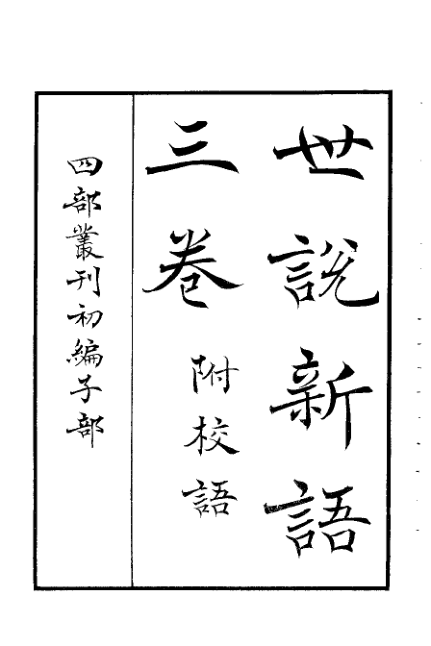 世說新語
三卷 附校語
四部叢刊初編子部